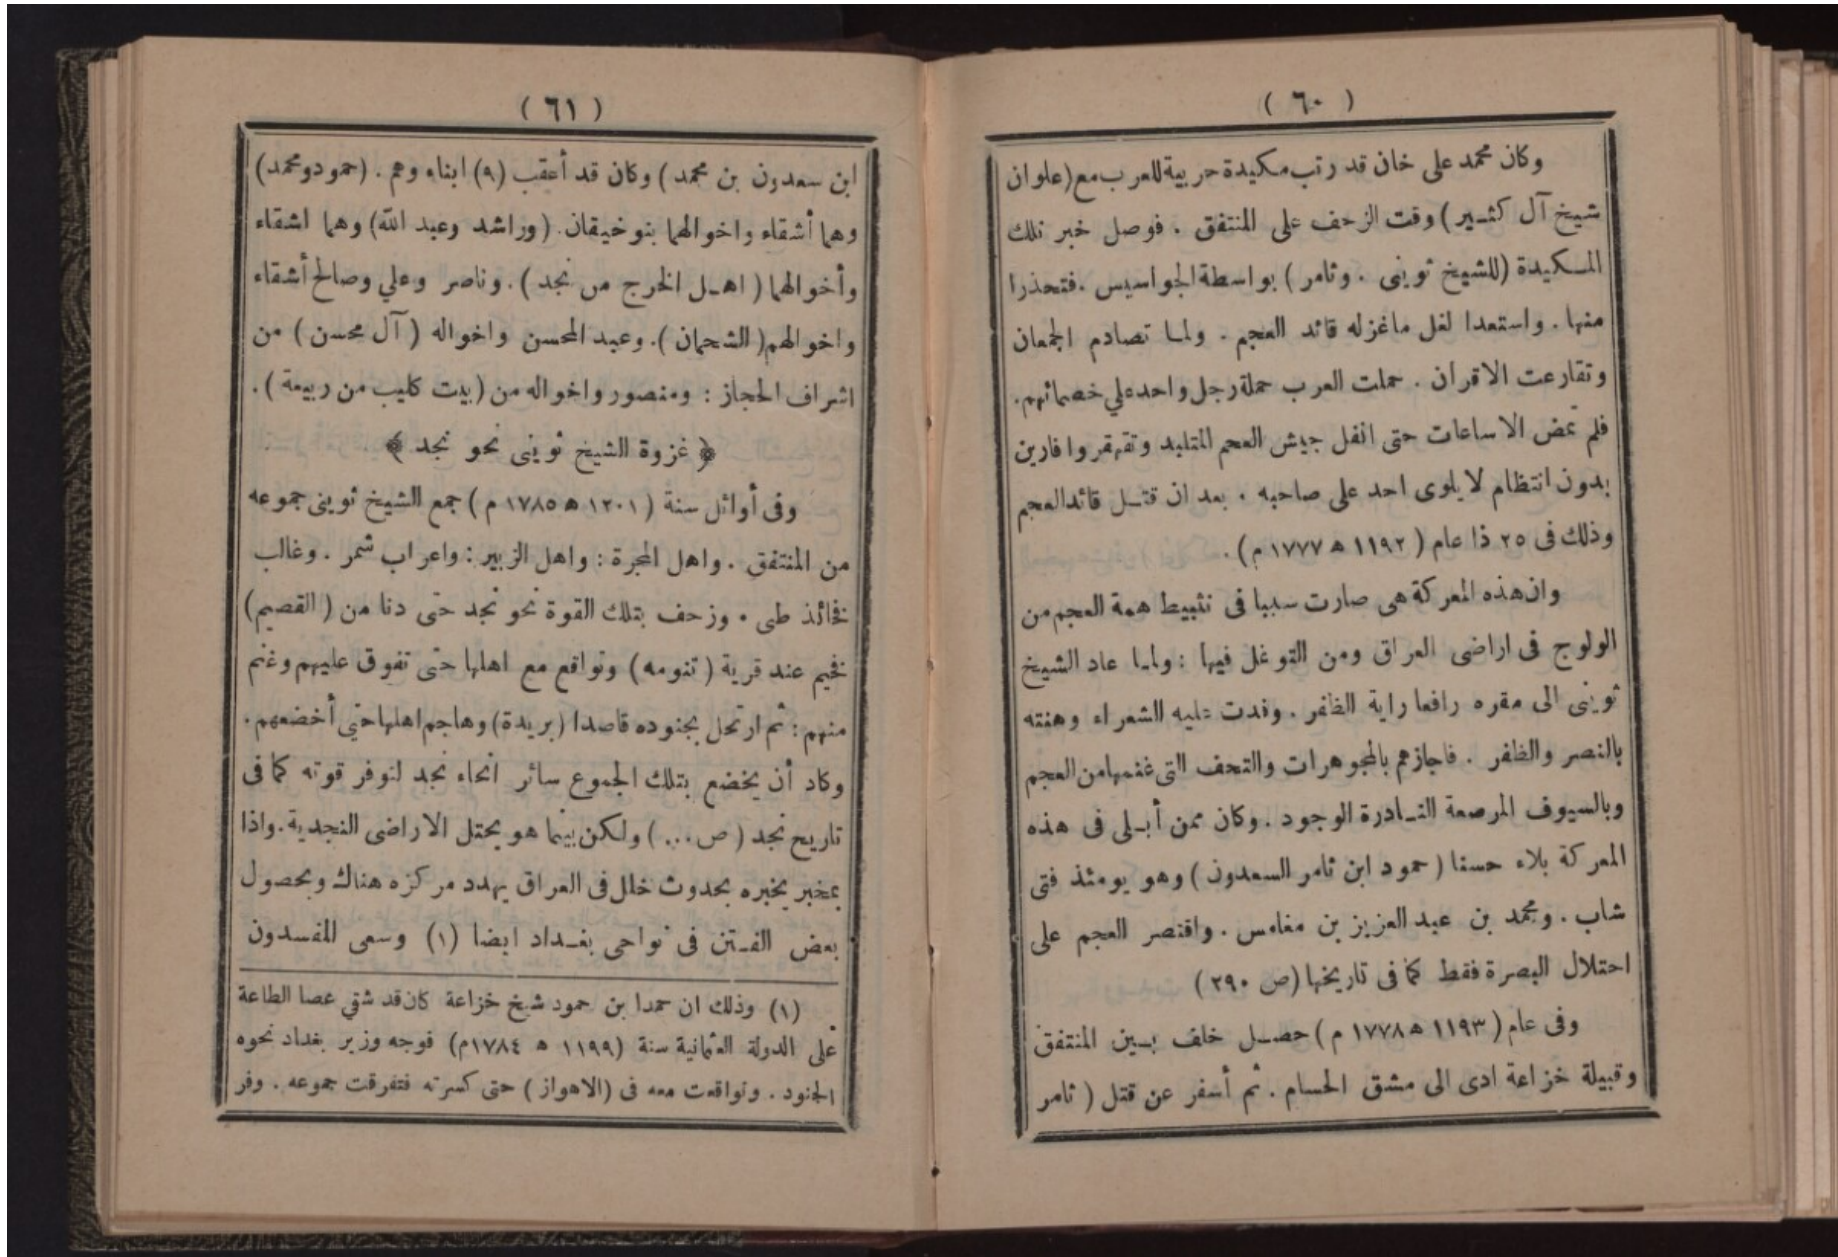 ( ٦٠ )
وكان محمد علي خان قد رتب مكيدة حربية للعرب مع (علوان
شيخ آل كثير) وقت الزحف على المنتفق . فوصل خبر تلك
المكيدة (للشيخ ثويني . وثامر) بواسطة الجواسيس . فتحذرا
منها . واستعدا لفل ماغزله قائد العجم . ولما تصادم الجمعان
وتقارعت الاقران . حملت العرب حملة رجل واحد علي خصمائهم .
فلم تمض الا ساعات حتى انفل جيش العجم المتلبد وتقهقروا فارين
بدون انتظام لا يلوى احد على صاحبه . بعد ان قتل قائد العجم
وذلك فى ٢٥ ذا عام ( ١١٩٢ ه ١٧٧٧ م ) .
وان هذه المعركة هى صارت سببا فى تثبيط همة العجم من
الولوج فى اراضى العراق ومن التوغل فيها : ولما عاد الشيخ
ثوينى الى مقره رافعا راية الظفر . وفدت عليه الشعراء وهنته
بالنصر والظفر . فاجازهم بالمجوهرات والتحف التى غنمها من العجم
وبالسيوف المرصعة النادرة الوجود . وكان ممن أبلى فى هذه
المعركة بلاء حسنا ( حمود ابن ثامر السعدون ) وهو يومئذ فتى
شاب . ومحمد بن عبد العزيز بن مغامس . واقتصر العجم على
احتلال البصرة فقط كما فى تاريخها (ص ٢٩٠ )
وفى عام ( ١١٩٣ ه ١٧٧٨ م ) حصل خلف بين المنتفق
وقبيلة خزاعة ادى الى مشق الحسام . ثم أسفر عن قتل ( ثامر
( ٦١ )
ابن سعدون بن محمد ) وكان قد أعقب (٩) ابناء وهم . (حمود ومحمد)
وهما أشقاء واخوالهما بنو خيقان . (وراشد وعبد الله) وهما اشقاء
وأخوالهما ( اهل الخرج من نجد ) . وناصر وعلي وصالح أشقاء
واخوالهم ( الشحمان ) . وعبد المحسن واخواله ( آل محسن ) من
اشراف الحجاز : ومنصور واخواله من (بيت كليب من ربيعة ) .
﴿ غزوة الشيخ ثوينى نحو نجد ﴾
وفى أوائل سنة ( ١٢٠١ ه ١٧٨٥ م ) جمع الشيخ ثوينى جموعه
من المنتفق . واهل المجرة : واهل الزبير : واعراب شمر . وغالب
فخائذ طى . وزحف بتلك القوة نحو نجد حتى دنا من ( القصيم)
فخيم عند قرية ( تنومه ) وتواقع مع اهلها حتى تفوق عليهم وغنم
منهم : ثم ارتحل بجنوده قاصدا (بريدة) وهاجم اهلها حتي أخضعهم .
وكاد أن يخضع بتلك الجموع سائر انحاء نجد لتوفر قوته كما فى
تاريخ نجد ( ص ... ) ولكن بينما هو يحتل الاراضى النجدية . واذا
بمخبر يخبره بحدوث خلل فى العراق يهدد مركزه هناك وبحصول
بعض الفتن فى نواحى بغداد ايضا (١) وسعى المفسدون
(١) وذلك ان حمدا بن حمود شيخ خزاعة كان قد شقي عصا الطاعة
على الدولة العثمانية سنة (١١٩٩ ه ١٧٨٤م) فوجه وزير بغداد نحوه
الجنود . وتواقعت معه فى (الاهواز ) حتى كسرته فتفرقت جموعه . وفر